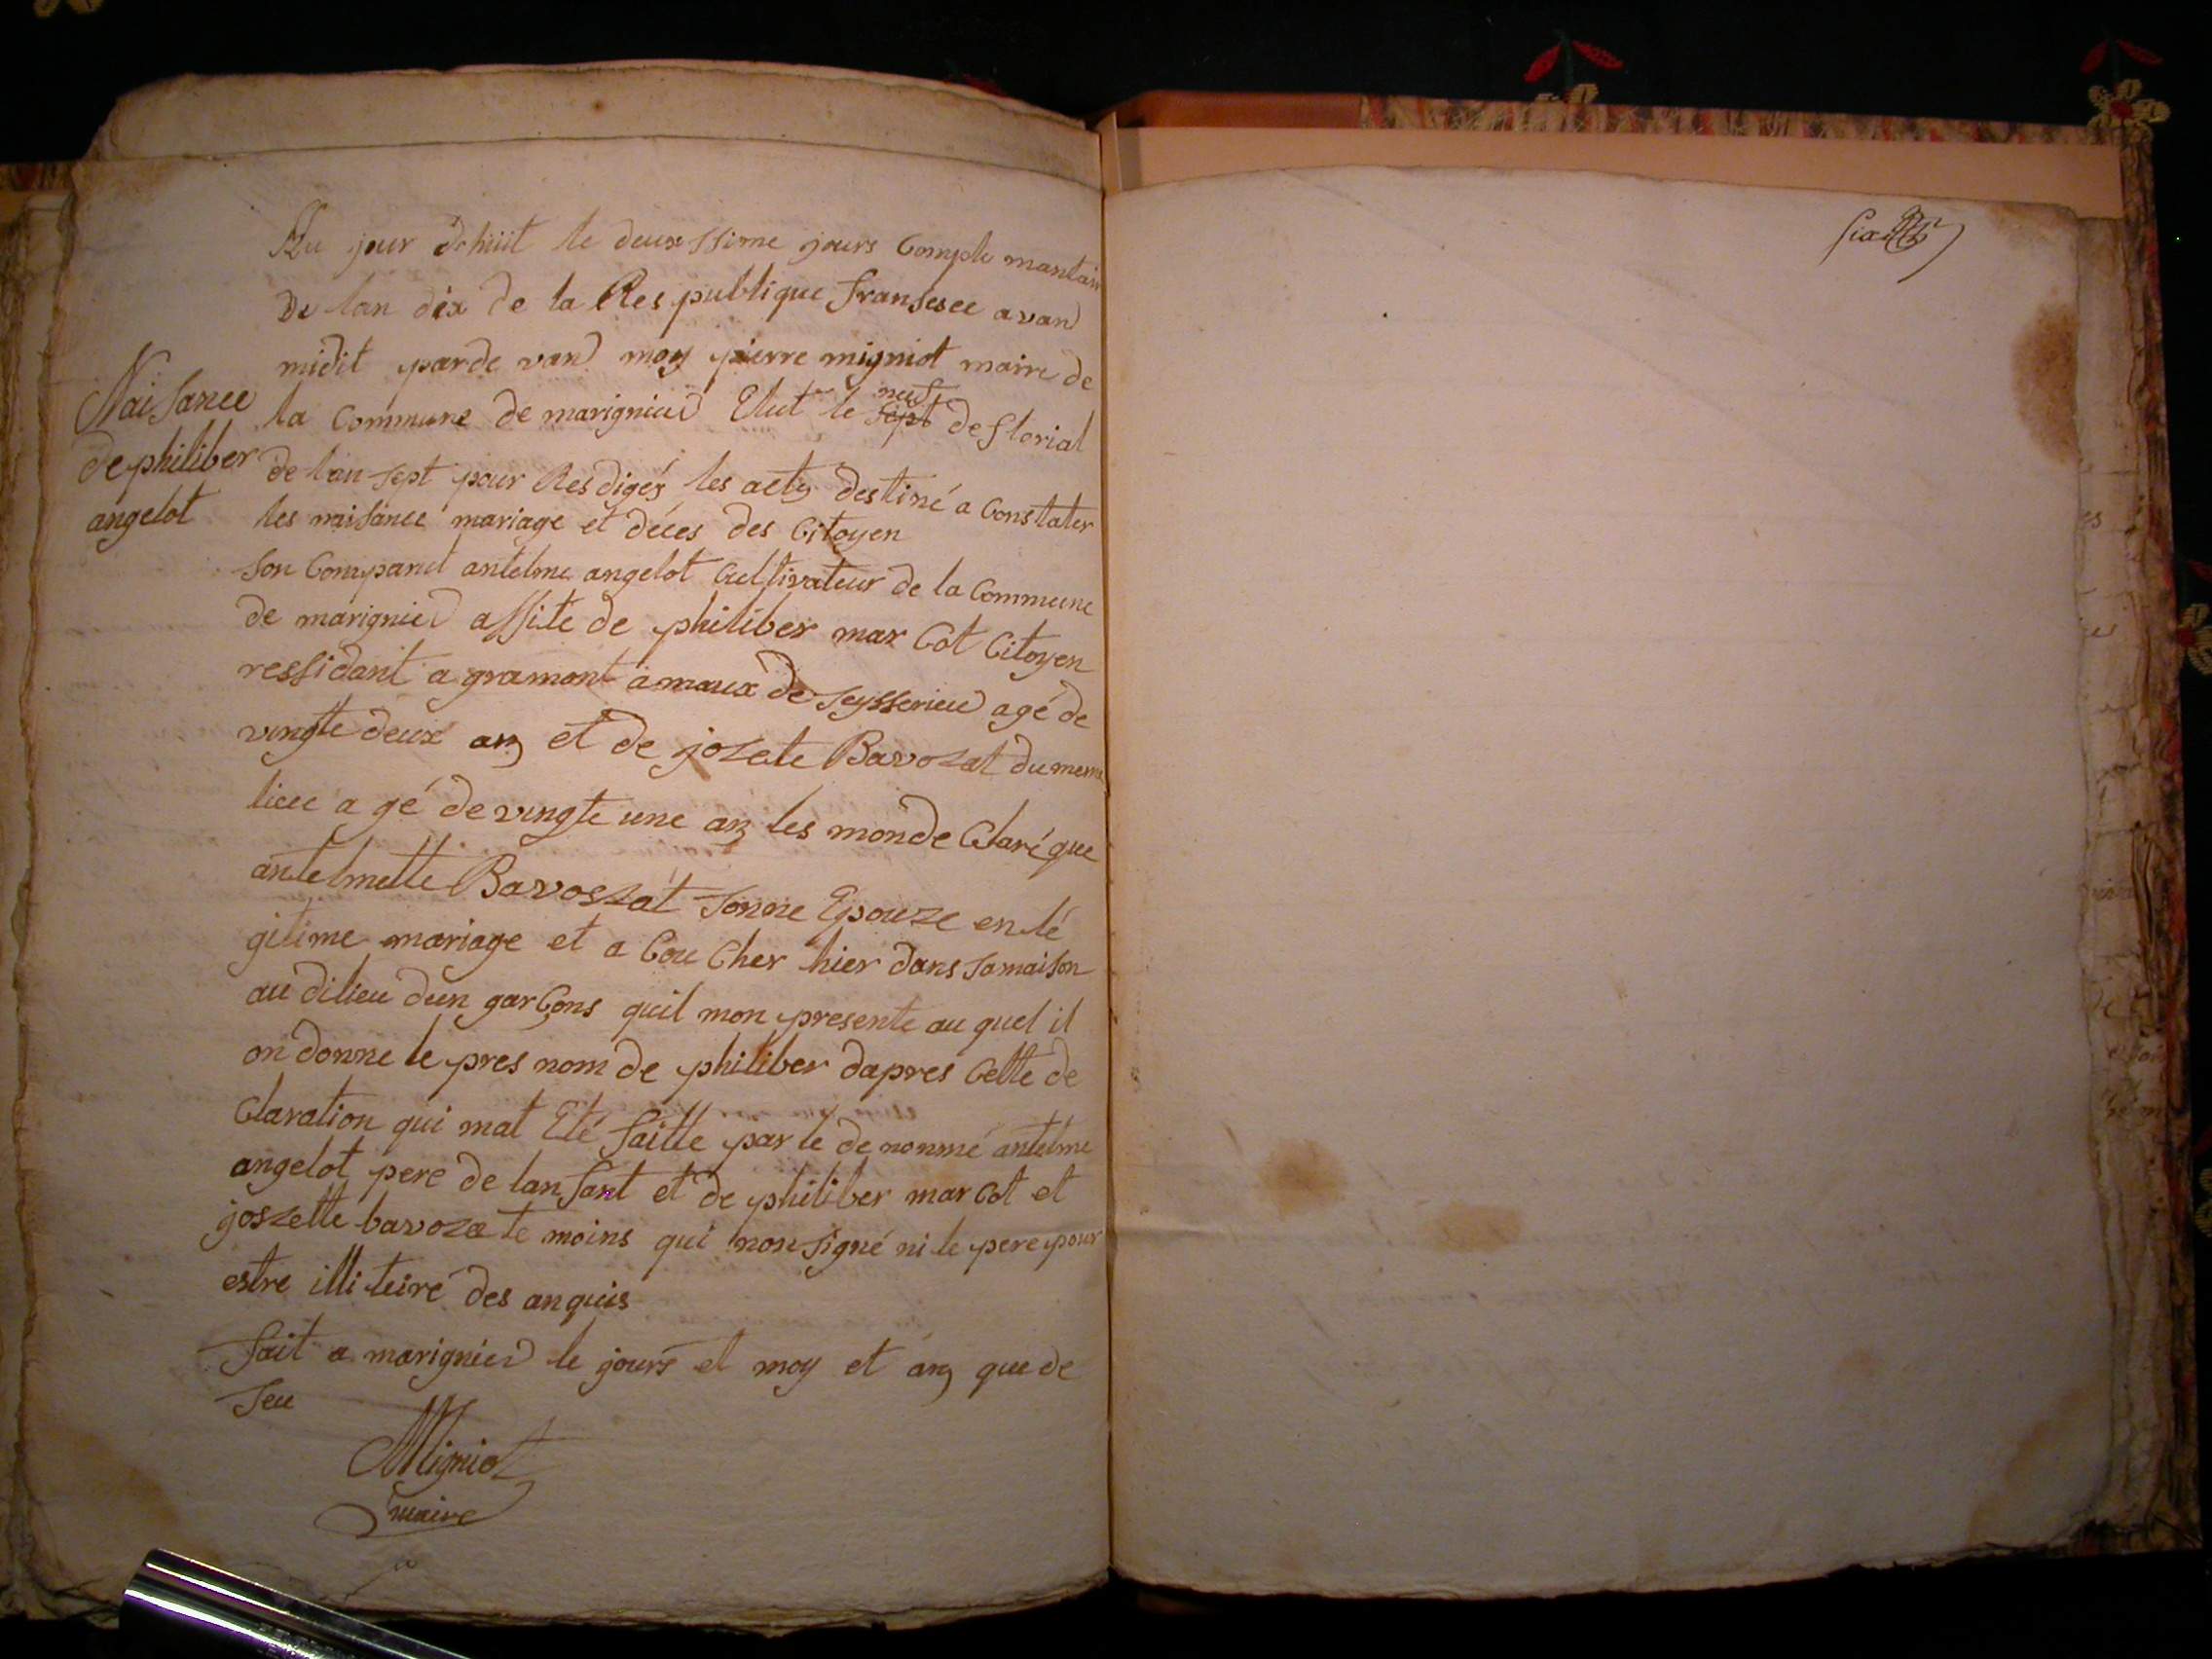 Au jour dehuit le deuxssime jours Complemantair
De lan dix de la Respublique fransesee avan
midit pardevand moy pierre migniot maire de
la Commune de marignieu Elut le neuf sept de florial
de lan sept pour Resdigés les acte destiné a Constater
les naisance mariage et déces des Citoyen
Naisance
de philiber
angelot
son Comparut antelme angelot Cultivateur de la Commune
de marignieu assite de philiber marCot Citoyen
ressidant a gramont amaux de seysserieu agé de
vingte deux an et de jozete Bavozat du meme
lieu a gé de vingte une an les monde Claré que
antelmette Bavoszat sonne Epouze en lé
gitime mariage et a Cou Cher hier dans samaison
au dilieu dun garçons quil mon presente au quel il
on donne le pres nom de philiber dapres Cette de
Claration qui mat Eté faitte par le de nommé antelme
angelot pere de lanfant et de philiber marCot et
joszette bavozat te moins qui non signé ni le pere pour
estre illi teiré des anquis
fait a marignieu le jours et moy et an que de
seu
Migniot
maire